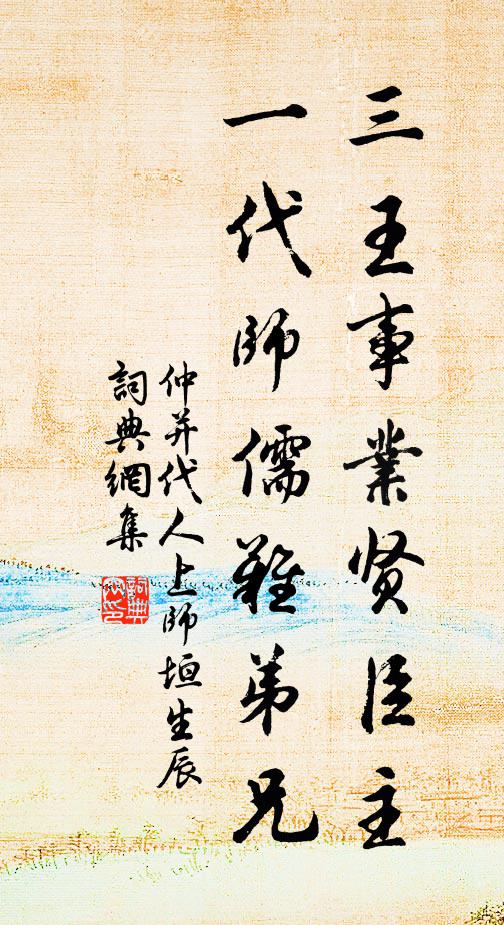 三王事業贤臣主
一代師儒難弟兄
仲并代人上師垣生辰
詞典網集